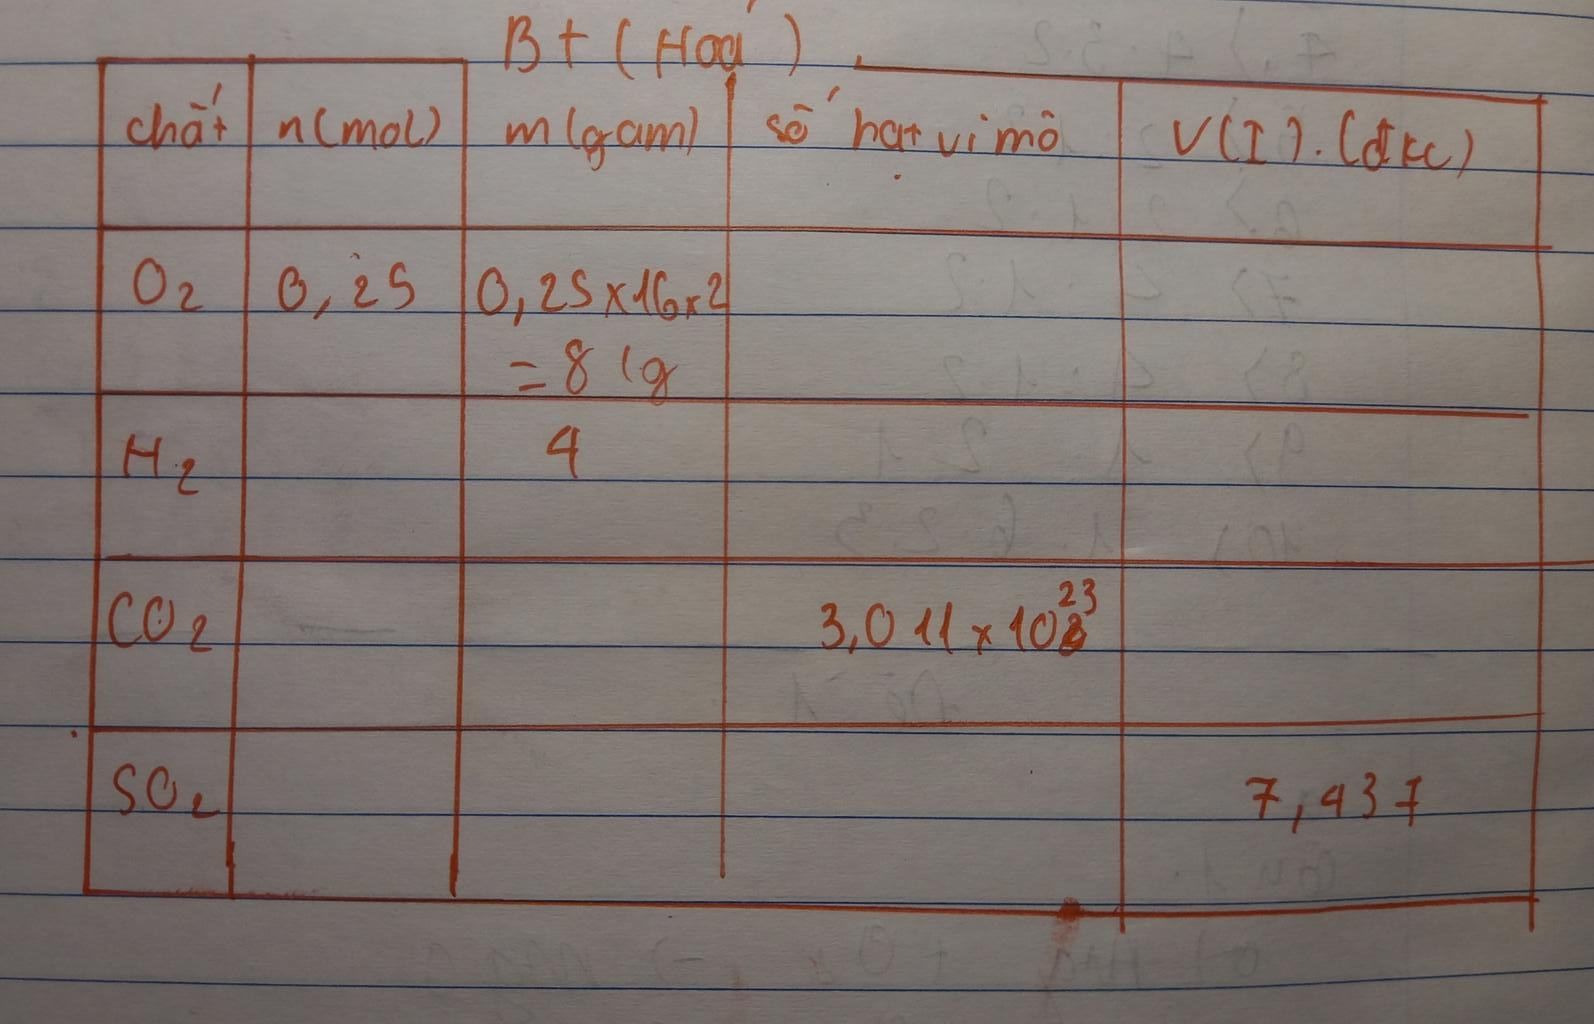 Bt (Hoá)
chất n(mol) m(gam) số hạt vi mô V(I).(đkc)
O2 0,25 0,25x16x2
= 8 (g
H2 4
CO2 3,011x10²³
SO2 7,437